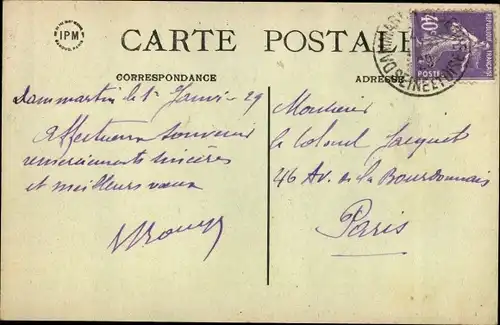 IPM
CARTE POSTALE
CORRESPONDANCE
ADRESSE
40c
POSTES
SEINE ET
Dammartin le 1er Janvier 29
Affectueux souvenir
remerciements sincères
et meilleurs vœux
Monsieur
le Colonel Jacquet
46 Av. de la Bourdonnais
Paris